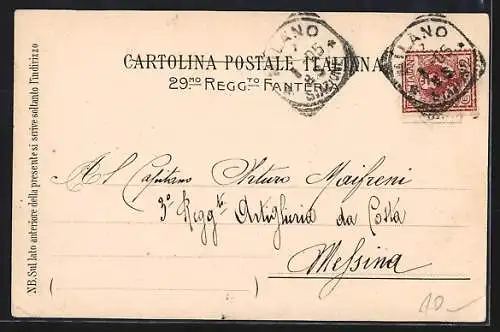 CARTOLINA POSTALE ITALIANA
29.MO REGG.TO FANTERIA
MILANO
05
MILANO
05
NB. Sul lato anteriore della presente si scrive soltanto l'indirizzo
Al Capitano Arturo Maifreni
3º Regg.to Artiglieria da Costa
Messina
10-